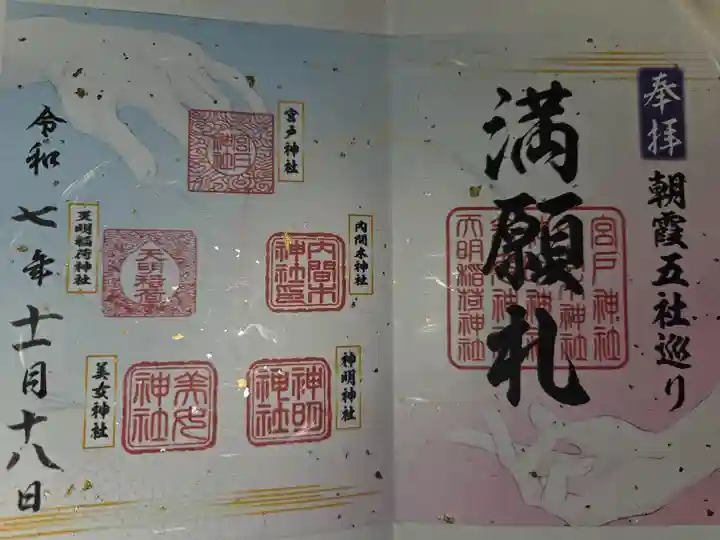 奉拝
朝霞五社巡り
満願札
宮戸神社
神明神社
天明稲荷神社
宮戸神社
宮戸神社
内間木神社
内間木神社印
神明神社
神明神社
天明稲荷神社
天明稲荷
美女神社
美女神社
令和七年十一月十八日